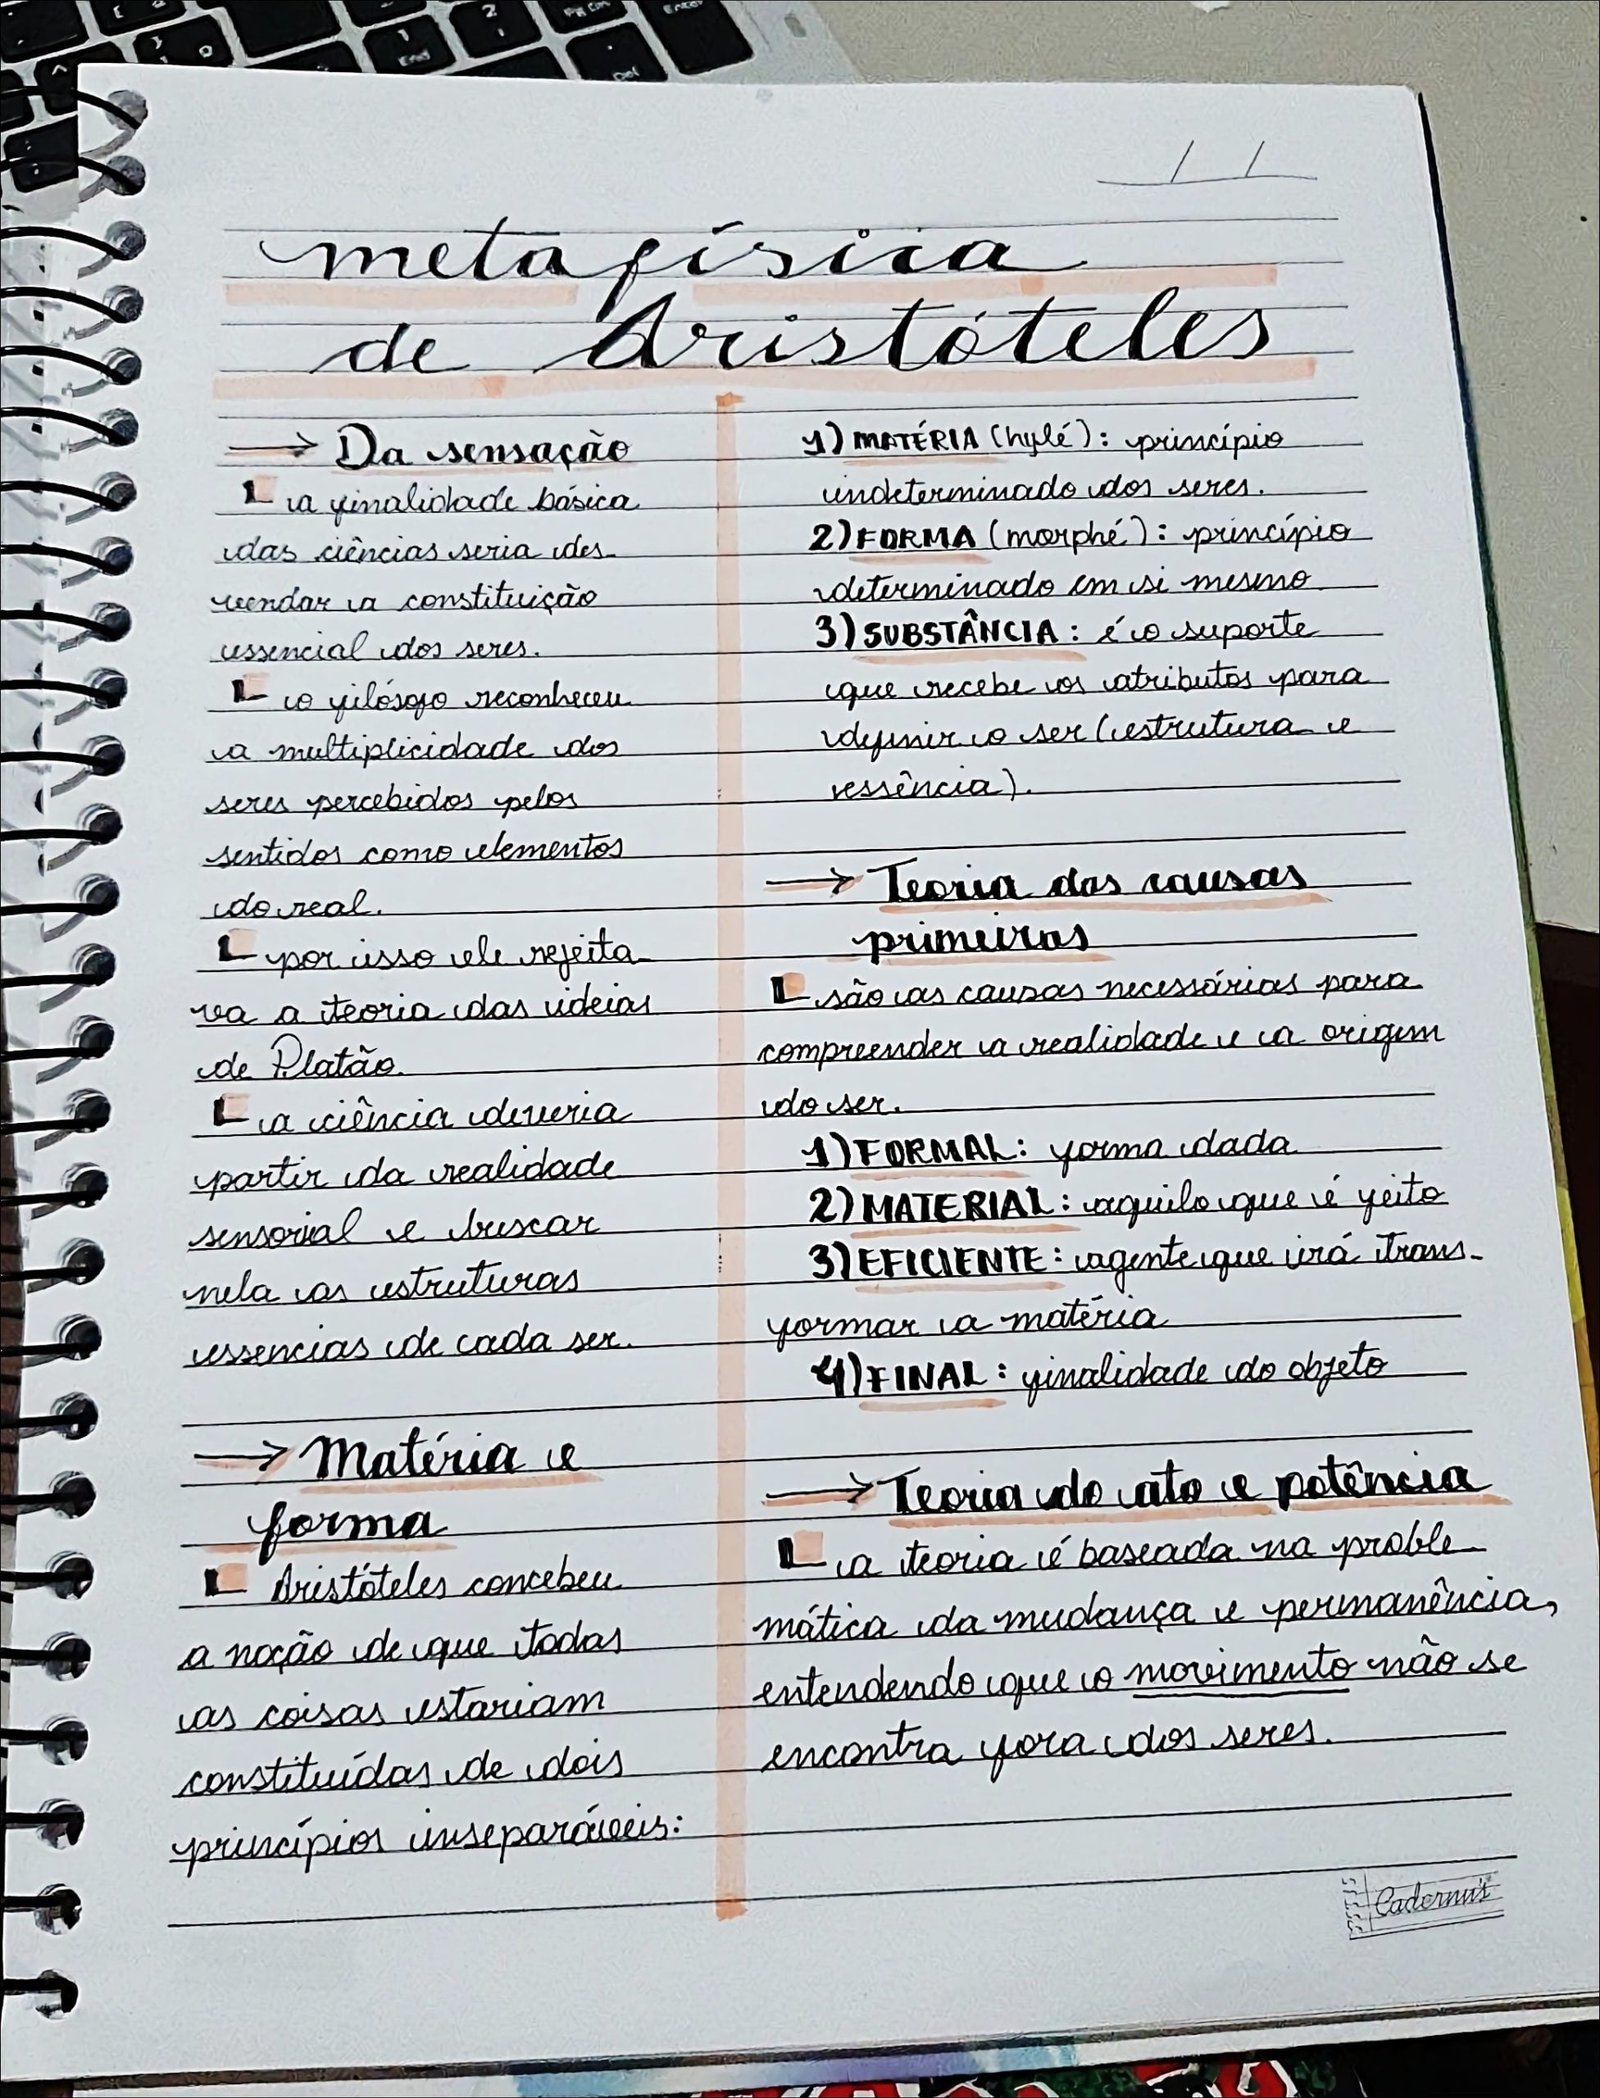 metafísica
de Aristóteles
→ Da sensação
a finalidade básica
das ciências seria des-
vendar a constituição
essencial dos seres.
o filósofo reconheceu
a multiplicidade dos
seres percebidos pelos
sentidos como elementos
do real.
por isso ele rejeita-
va a teoria das ideias
de Platão.
a ciência deveria
partir da realidade
sensorial e buscar
nela as estruturas
essencias de cada ser.
→ Matéria e
forma
Aristóteles concebeu
a noção de que todas
as coisas estariam
constituídas de dois
princípios inseparáveis:
1) MATÉRIA (hylé): princípio
indeterminado dos seres.
2) FORMA (morphé): princípio
determinado em si mesmo
3) SUBSTÂNCIA: é o suporte
que recebe os atributos para
definir o ser (estrutura e
essência).
→ Teoria das causas
primeiras
são as causas necessárias para
compreender a realidade e a origem
do ser.
1) FORMAL: forma dada
2) MATERIAL: aquilo que é feito
3) EFICIENTE: agente que irá trans-
formar a matéria
4) FINAL: finalidade do objeto
→ Teoria do ato e potência
a teoria é baseada na proble-
mática da mudança e permanência,
entendendo que o movimento não se
encontra fora dos seres.
Cadernu's